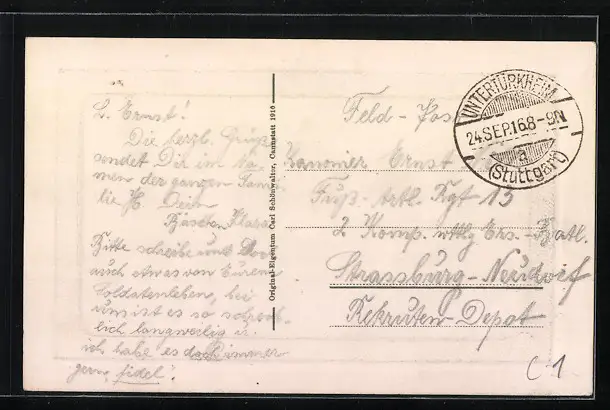 L. Ernst!
Die herzl. Grüße
sendet Dir im Na-
men der ganzen Fami-
lie H. Dein
Bäschen Klara
Bitte schreibe uns doch
auch etwas von Eurem
Soldatenleben, bei
uns ist es so schreck-
lich langweilig u.
ich habe es doch immer
gern fidel!
Original-Eigentum Carl Schönwalter, Cannstatt 1916
Feld-Pos
UNTERTÜRKHEIM
24.SEP.16.8-9N
a
(Stuttgart)
Kanonier Ernst
Fuß-artl. Rgt 13
2 Komp. wttbg Ers.-Batl.
Strassburg-Neudorf
Rekruten-Depot
C-1